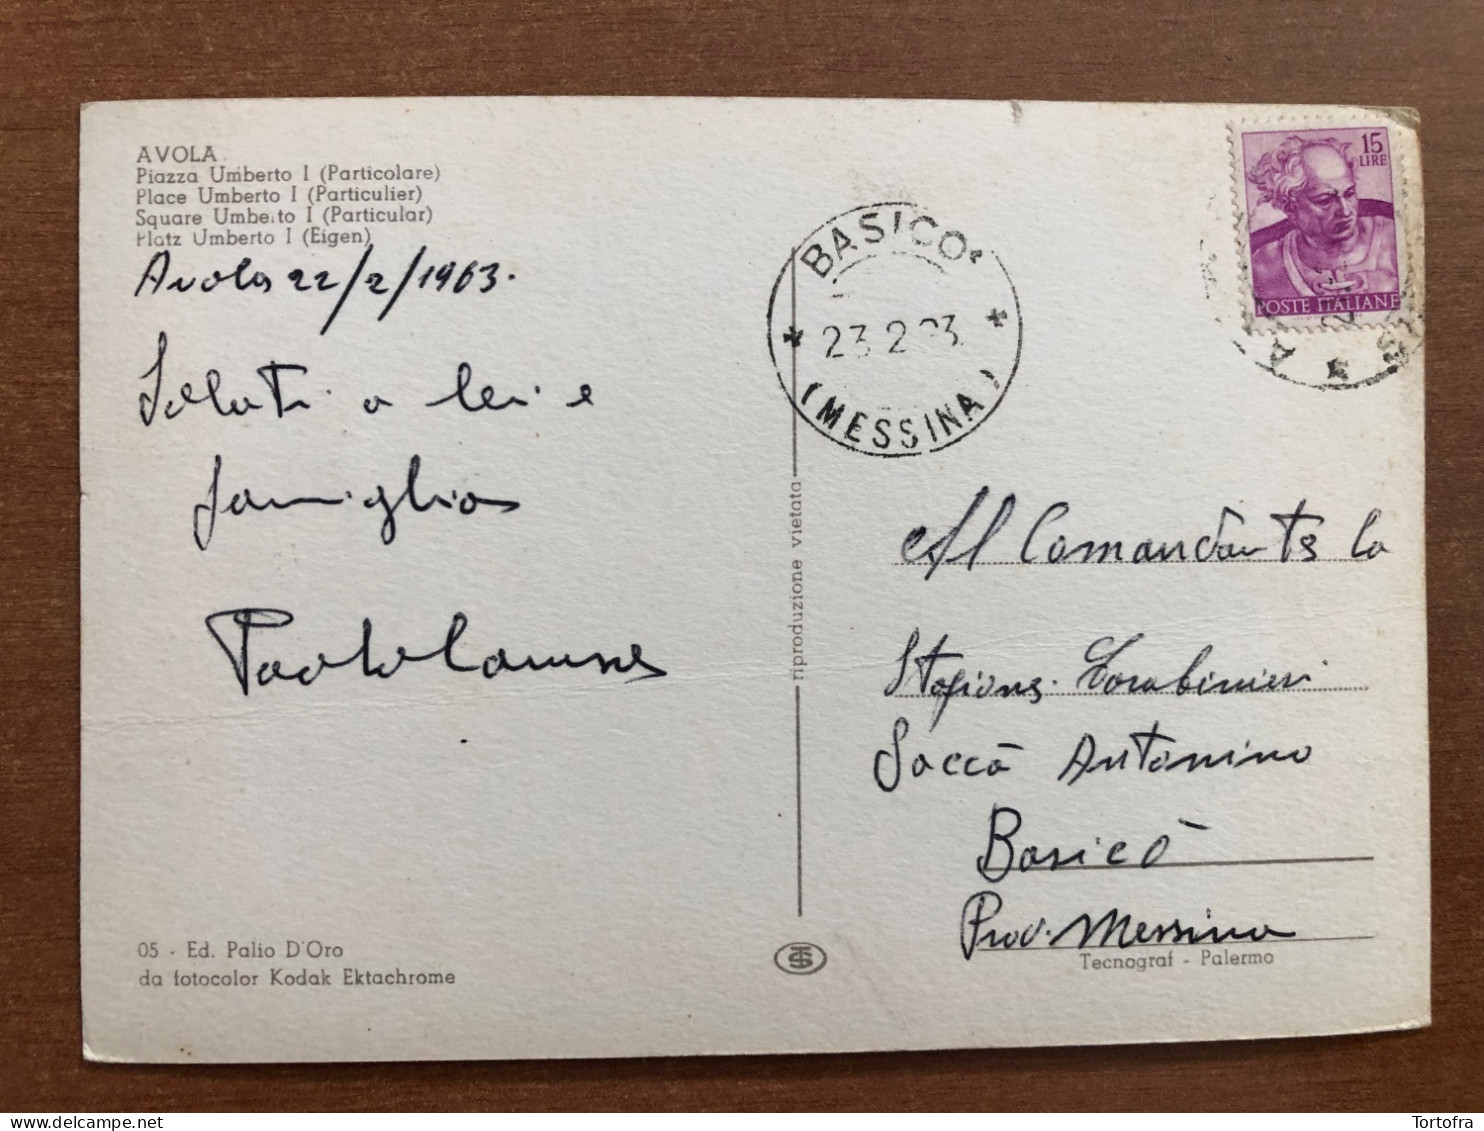 AVOLA
Piazza Umberto I (Particolare)
Place Umberto I (Particulier)
Square Umberto I (Particular)
Platz Umberto I (Eigen)
Avola 22/2/1963.
Saluti a lei e
famiglia
Paolo
05 - Ed. Palio D'Oro
da fotocolor Kodak Ektachrome
riproduzione vietata
BASICO'
23.2.
(MESSINA)
15
LIRE
POSTE ITALIANE
Al Comandante la
Stazione Carabinieri
Saccà Antonino
Basicò
Prov. Messina
Tecnograf - Palermo
Tortofra